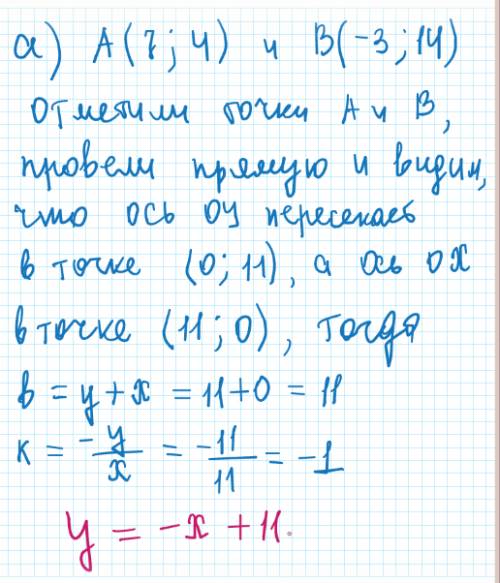 а) А(7; 4) и В(-3; 14)
отметили точки А и В,
провели прямую и видим,
что ось ОУ пересекает
в точке (0; 11), а ось ОХ
в точке (11; 0), тогда
в = у + х = 11 + 0 = 11
к = -у/х = -11/11 = -1
у = -х + 11.